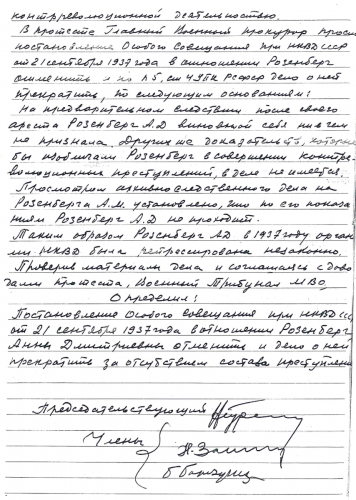 контрреволюционной деятельностью.
В протесте Главный Военный прокурор просит
постановление Особого Совещания при НКВД СССР
от 21 сентября 1937 года в отношении Розенберг
отменить и по п. 5, ст 4 УПК РСФСР дело о ней
прекратить, по следующим основаниям:
На предварительном следствии после своего
ареста Розенберг А.Д виновной себя ни в чем
не признала. Других же доказательств, которые
бы изобличали Розенберг в совершении контрре-
волюционных преступлений, в деле не имеется.
Просмотром архивно следственного дела на
Розенберга А.М. установлено, что по его показа-
ниям Розенберг А.Д не проходит.
Таким образом Розенберг АД в 1937 году орган
ми НКВД была репрессирована незаконно.
Проверив материалы дела и соглашаясь с дово
дами протеста, Военный Трибунал МВО,
Определил:
Постановление Особого совещания при НКВД ССС
от 21 сентября 1937 года в отношении Розенберг
Анны Дмитриевны отменить и дело о ней
прекратить за отсутствием состава преступлени
Председательствующий
Члены